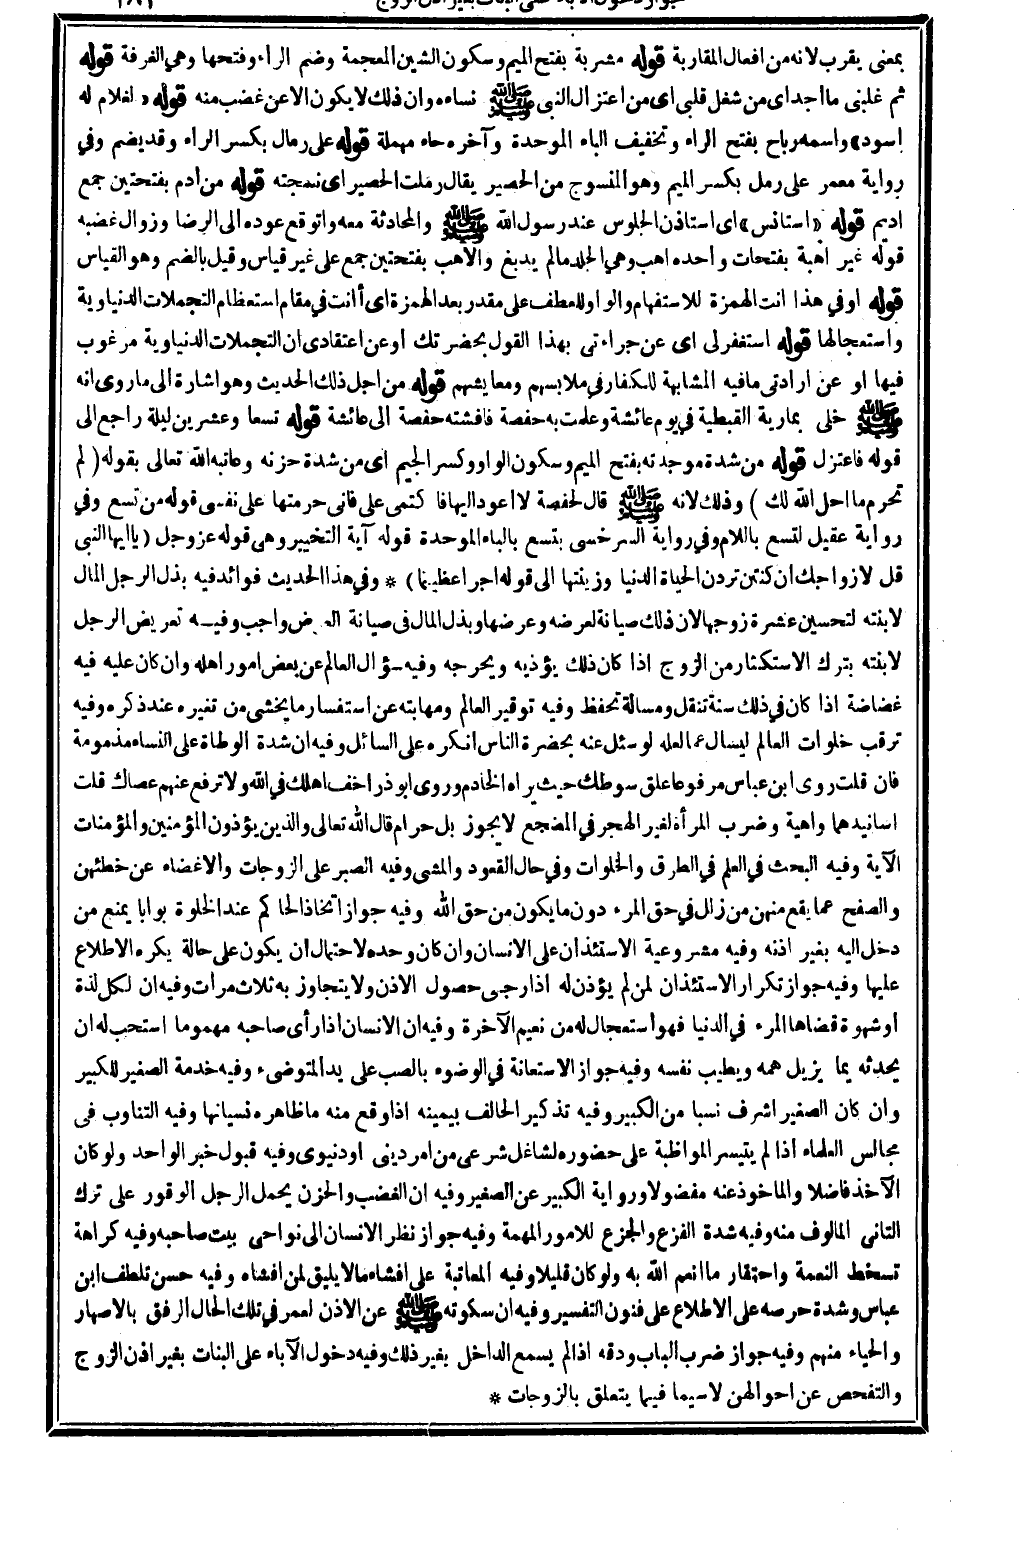 جواز دخول الآباء على البنات بغير اذن الزوج
بمعنى يقرب لانه من افعال المقاربة قوله مشربة بفتح الميم وسكون الشين المعجمة وضم الراء وفتحها وهي الغرفة قوله
ثم غلبنى ما أجد اى من شغل قلبى اى من اعتزال النبى ﷺ نساءه وان ذلك لا يكون الا عن غضب منه قوله «لغلام له
اسود» واسمه رباح بفتح الراء وتخفيف الباء الموحدة وآخره حاء مهملة قوله على رمال بكسر الراء وقد يضم وفي
رواية معمر على رمل بكسر الميم وهو المنسوج من الحصير يقال رملت الحصير اى نسجته قوله من أدم بفتحتين جمع
اديم قوله «استانس» اى استاذن الجلوس عند رسول الله ﷺ والمحادثة معه واتوقع عوده الى الرضا وزوال غضبه
قوله غير اهبة بفتحات واحده اهب وهي الجلد مالم يدبغ والاهب بفتحتين جمع على غير قياس وقيل بالضم وهو القياس
قوله اوفي هذا انت الهمزة للاستفهام والواو للعطف على مقدر بعد الهمزة اى أانت في مقام استعظام التجملات الدنياوية
واستعجالها قوله استغفر لى اى عن جراءتى بهذا القول بحضرتك أوعن اعتقادى ان التجملات الدنياوية مرغوب
فيها او عن ارادتى مافيه المشابهة للكفار في ملابسهم ومعايشهم قوله من اجل ذلك الحديث وهو اشارة الى ماروى انه
ﷺ خلى بمارية القبطية في يوم عائشة وعلمت به حفصة فافشته حفصة الى عائشة قوله تسعا وعشرين ليلة راجع الى
قوله فاعتزل قوله من شدة موجدته بفتح الميم وسكون الواو وكسر الجيم اى من شدة حزنه وعاتبه الله تعالى بقوله (لم
تحرم ما احل الله لك) وذلك لانه ﷺ قال لحفصة لا أعود اليها فاكتمى على فانى حرمتها على نفسى قوله من تسع وفي
رواية عقيل لتسع باللام وفي رواية السرخسى بتسع بالباء الموحدة قوله آية التخيير وهى قوله عز وجل (يا ايها النبى
قل لازواجك ان كنتن تردن الحياة الدنيا وزينتها الى قوله اجرا عظيما) * وفي هذا الحديث فوائد فيه بذل الرجل المال
لابنته لتحسين عشرة زوجها لان ذلك صيانة لعرضه وعرضها وبذل المال فى صيانة العرض واجب وفيه تعريض الرجل
لابنته بترك الاستكثار من الزوج اذا كان ذلك يؤذيه ويحرجه وفيه سؤال العالم عن بعض امور اهله وان كان عليه فيه
غضاضة اذا كان في ذلك سنة تنقل ومسألة تحفظ وفيه توقير العالم ومهابته عن استفسار ما يخشى من تغيره عند ذكره وفيه
ترقب خلوات العالم ليسال عما لعله لو سئل عنه بحضرة الناس انكره على السائل وفيه ان شدة الوطاة على النساء مذمومة
فان قلت روى ابن عباس مرفوعا علق سوطك حيث يراه الخادم وروى ابوذر اخف اهلك في الله ولا ترفع عنهم عصاك قلت
اسانيدهما واهية وضرب المرأة لغير الهجر في المضجع لايجوز بل حرام قال الله تعالى والذين يؤذون المؤمنين والمؤمنات
الآية وفيه البحث في العلم في الطرق والخلوات وفي حال القعود والمشى وفيه الصبر على الزوجات والاغضاء عن خطئهن
والصفح عما يقع منهن من زلل في حق المرء دون ما يكون من حق الله وفيه جواز اتخاذ الحاكم عند الخلوة بوابا يمنع من
دخل اليه بغير اذنه وفيه مشروعية الاستئذان على الانسان وان كان وحده لاحتمال أن يكون على حالة يكره الاطلاع
عليها وفيه جواز تكرار الاستئذان لمن لم يؤذن له اذا رجى حصول الاذن ولا يتجاوز به ثلاث مرات وفيه ان لكل لذة
أو شهوة قضاها المرء في الدنيا فهو استعجال له من نعيم الآخرة وفيه ان الانسان اذا رأى صاحبه مهموما استحب له ان
يحدثه بما يزيل همه ويطيب نفسه وفيه جواز الاستعانة في الوضوء بالصب على يد المتوضىء وفيه خدمة الصغير للكبير
وان كان الصغير اشرف نسبا من الكبير وفيه تذكير الحالف بيمينه اذا وقع منه ماظاهره نسيانها وفيه التناوب فى
مجالس العلماء اذا لم يتيسر المواظبة على حضوره لشاغل شرعى من امر دينى اودنيوى وفيه قبول خبر الواحد ولو كان
الآخذ فاضلا والماخوذ عنه مفضولا ورواية الكبير عن الصغير وفيه ان الغضب والحزن يحمل الرجل الوقور على ترك
التانى المالوف منه وفيه شدة الفزع والجزع للامور المهمة وفيه جواز نظر الانسان الى نواحى بيت صاحبه وفيه كراهة
تسخط النعمة واحتقار ما انعم الله به ولو كان قليلا وفيه المعاتبة على افشاء مالا يليق لمن افشاه وفيه حسن تلطف ابن
عباس وشدة حرصه على الاطلاع على فنون التفسير وفيه ان سكوته ﷺ عن الاذن لعمر في تلك الحال الرفق بالاصهار
والحياء منهم وفيه جواز ضرب الباب ودقه اذا لم يسمع الداخل بغير ذلك وفيه دخول الآباء على البنات بغير اذن الزوج
والتفحص عن احوالهن لاسيما فيما يتعلق بالزوجات *